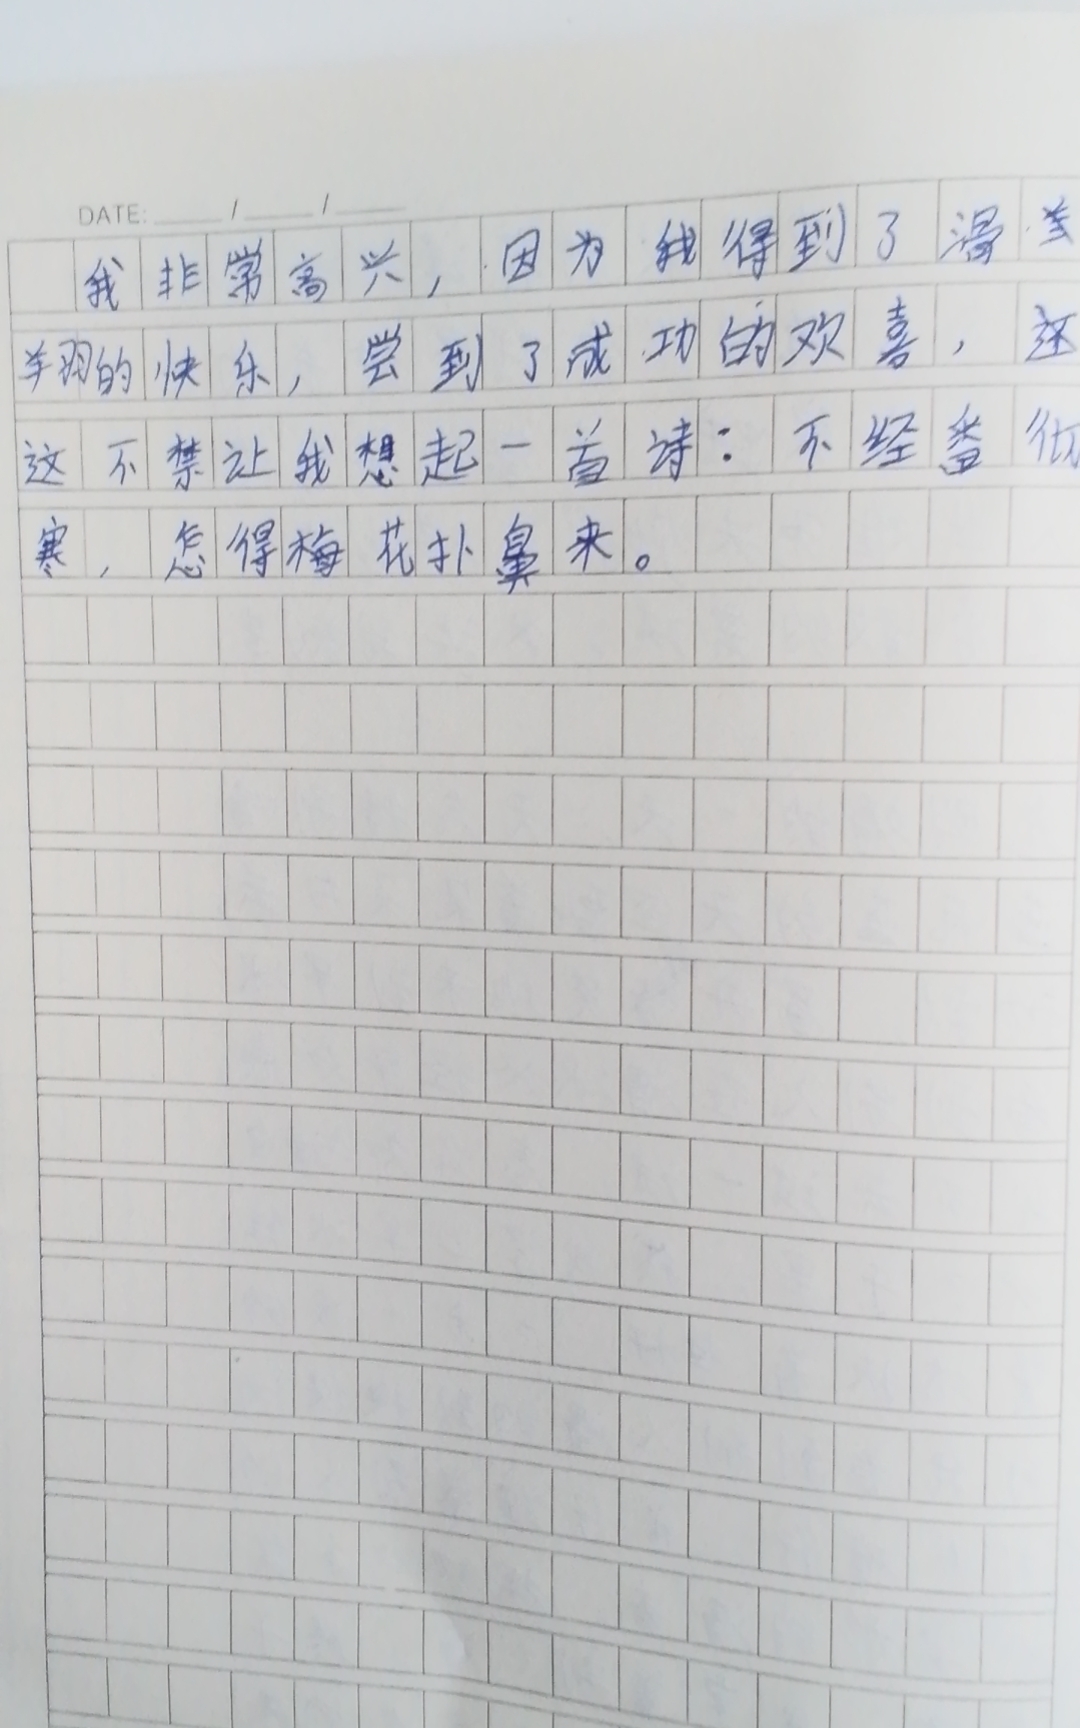 DATE: ____/____/____
我非常高兴，因为我得到了滑
翔的快乐，尝到了成功的欢喜，这
这不禁让我想起一首诗：不经番彻
寒，怎得梅花扑鼻来。